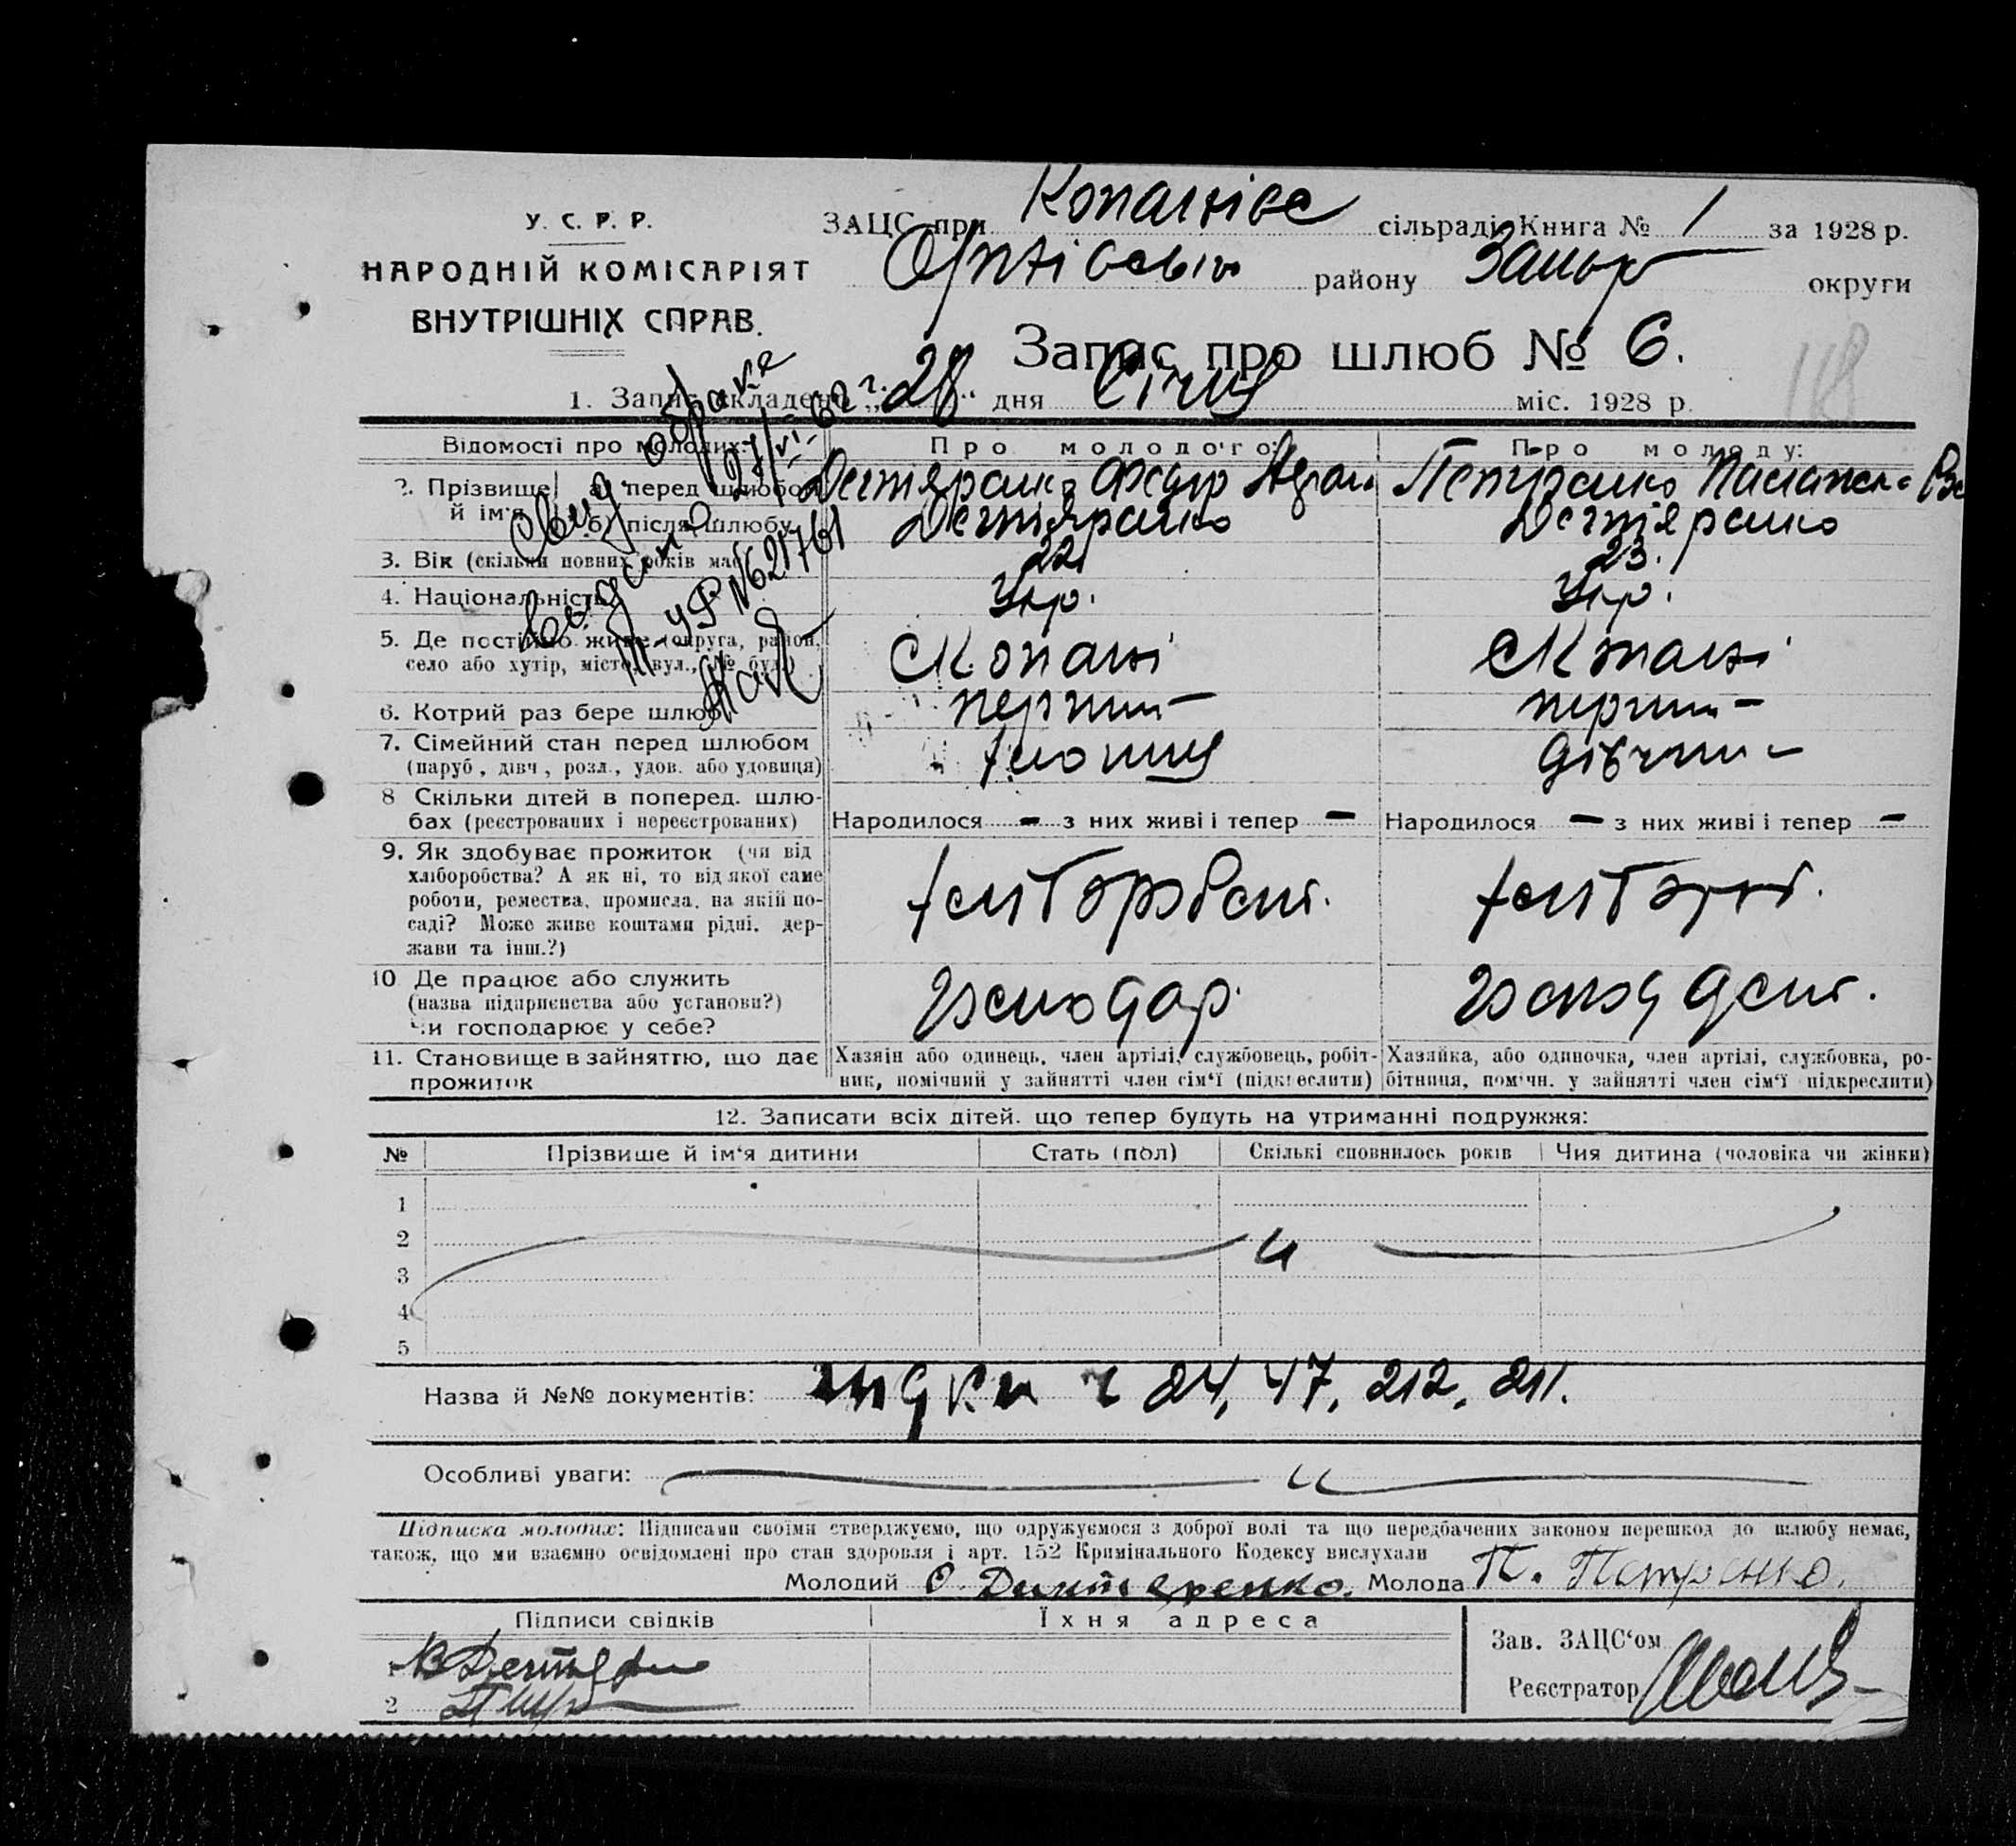 У. С. Р. Р.
НАРОДНІЙ КОМІСАРІЯТ
ВНУТРІШНІХ СПРАВ.
ЗАЦС при Копанівс сільраді Книга № 1 за 1928 р.
району Запор округи
Запис про шлюб № 6.
1. Запис складено „28“ дня Січня міс. 1928 р.
Свид. о браке
27/VI-62 г.
УР № 621761
Відомості про молодих: Про молодого: Про молоду:
2. Прізвище й ім'я
а) перед шлюбом Дегтяренко Федір Петренко
б) після шлюбу Дегтяренко Дегтяренко
3. Вік (скільки повних років має) 22 23.
4. Національність Укр. Укр.
5. Де постійно живе (округа, район,
село або хутір, місто, вул., № буд.) с Копані с Копані
6. Котрий раз бере шлюб перший перший
7. Сімейний стан перед шлюбом
(паруб., дівч., розл., удов. або удовиця) хлопець дівчина
8 Скільки дітей в поперед. шлю-
бах (реєстрованих і нереєстрованих) Народилося — з них живі і тепер — Народилося — з них живі і тепер —
9. Як здобуває прожиток (чи від
хліборобства? А як ні, то від якої саме
роботи, ремества, промисла, на якій по-
саді? Може живе коштами рідні, дер-
жави та інш.?)
10 Де працює або служить
(назва підприємства або установи?)
Чи господарює у себе? господар
11. Становище в зайняттю, що дає
прожиток
Хазяїн або одинець, член артілі, службовець, робіт-
ник, помічний у зайнятті член сім'ї (підкреслити)
Хазяйка, або одиночка, член артілі, службовка, ро-
бітниця, помічн. у зайнятті член сім'ї підкреслити)
12. Записати всіх дітей, що тепер будуть на утриманні подружжя:
№ Прізвище й ім'я дитини Стать (пол) Скількі сповнилось років Чия дитина (чоловіка чи жінки)
1
2
3
4
5
Назва й №№ документів: 24, 47, 212, 211.
Особливі уваги:
Підписка молодих: Підписами своїми стверджуємо, що одружуємося з доброї волі та що передбачених законом перешкод до шлюбу немає,
також, що ми взаємно освідомлені про стан здоровля і арт. 152 Кримінального Кодексу вислухали
Молодий Ф. Дихтяренко. Молода П. Петренко.
Підписи свідків Їхня адреса
1
2
Зав. ЗАЦС'ом
Реєстратор